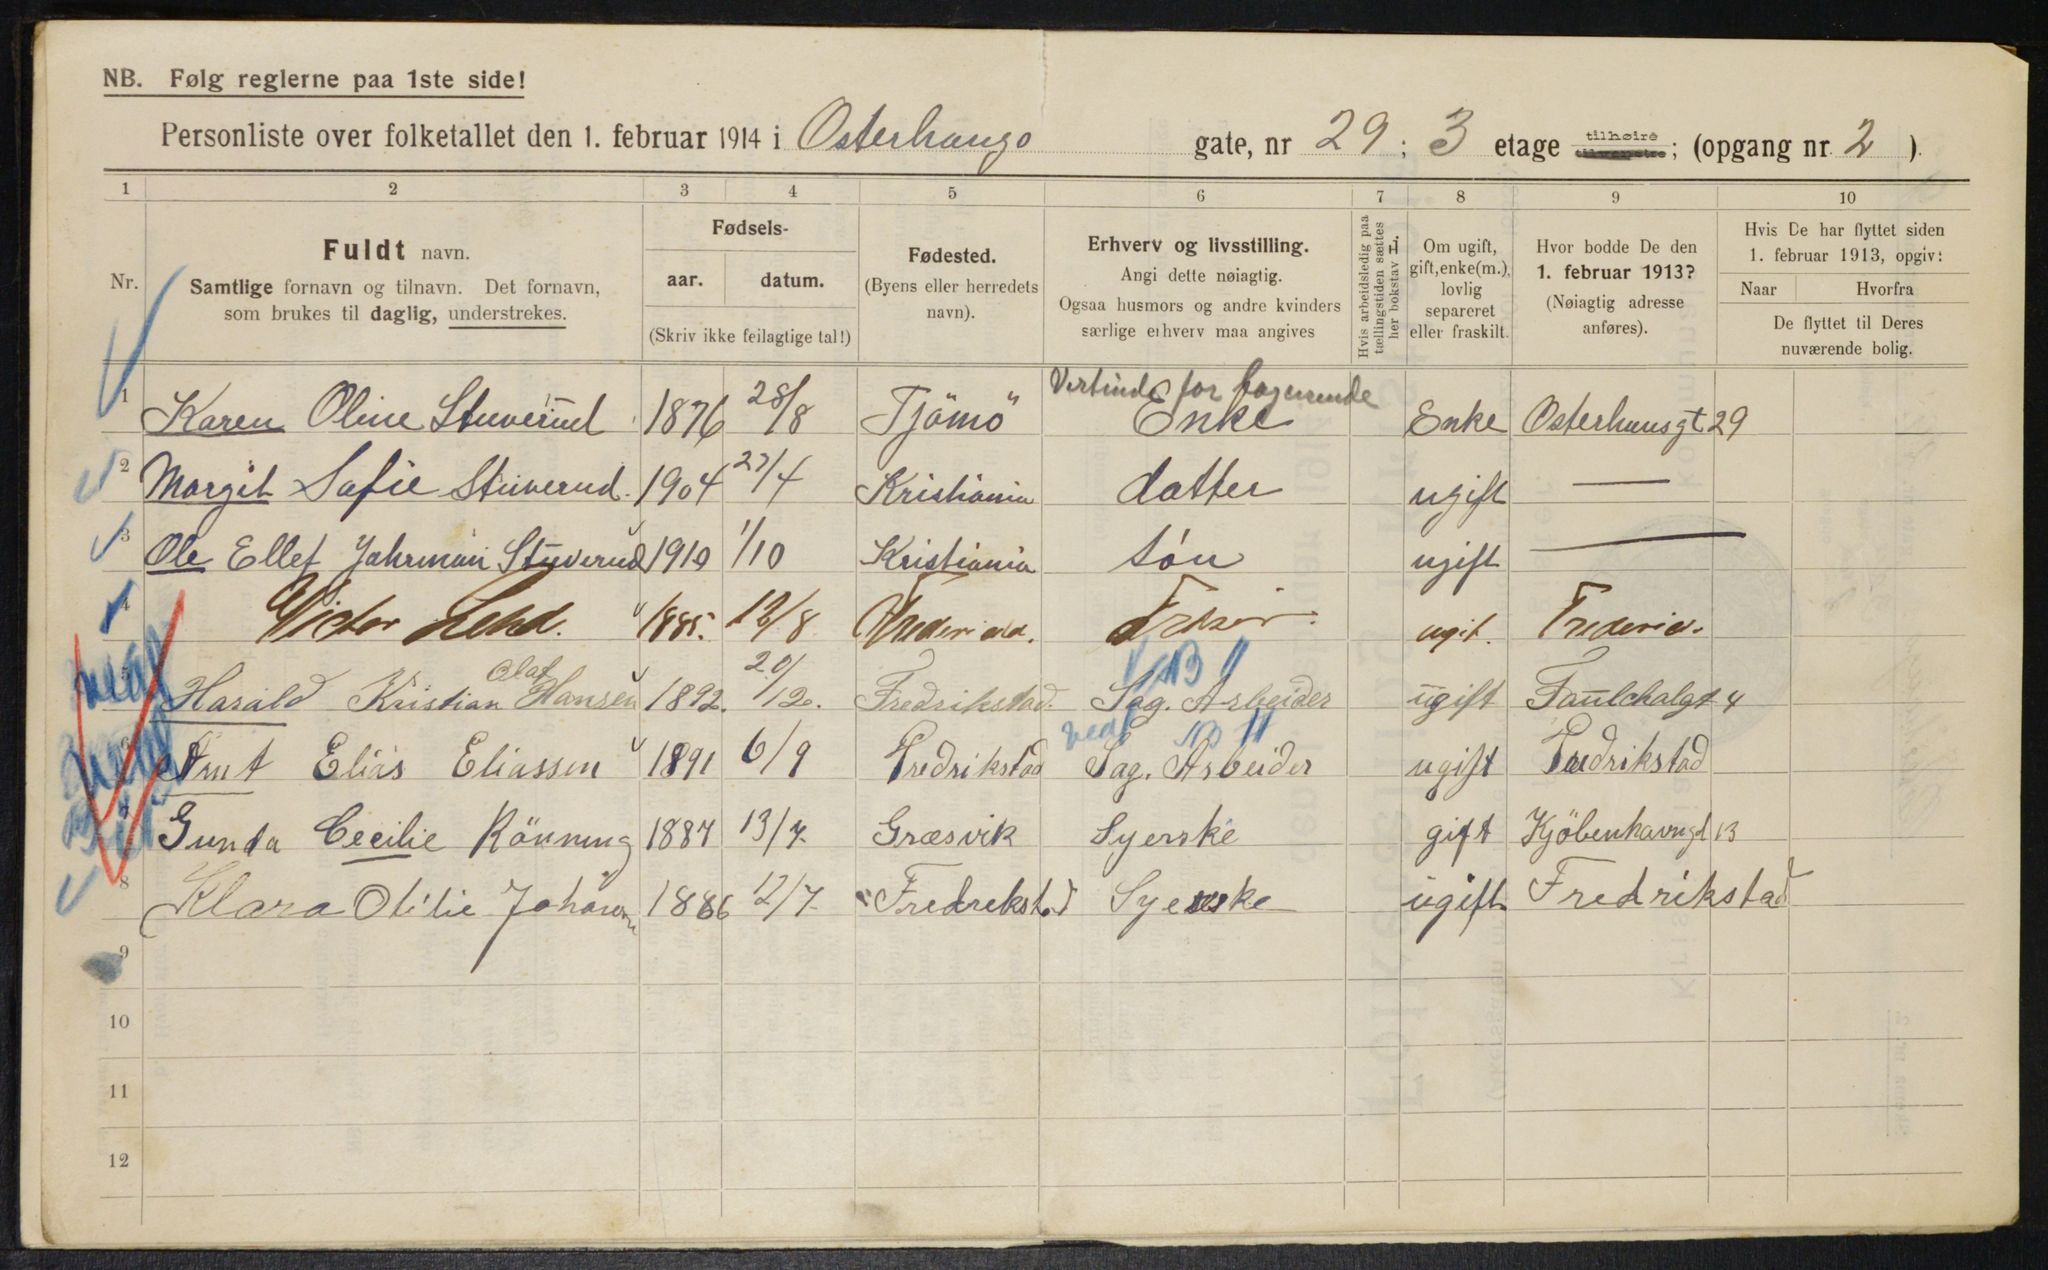 NB. Følg reglerne paa 1ste side!
Personliste over folketallet den 1. februar 1914 i Osterhausg gate, nr 29 ; 3 etage tilhøire ; (opgang nr 2 ).
1 2 3 4 5 6 7 8 9 10
Nr.
Fuldt navn.
Samtlige fornavn og tilnavn. Det fornavn,
som brukes til daglig, understrekes.
Fødsels-
aar. datum.
(Skriv ikke feilagtige tal!)
Fødested.
(Byens eller herredets
navn).
Erhverv og livsstilling.
Angi dette nøiagtig.
Ogsaa husmors og andre kvinders
særlige erhverv maa angives
Hvis arbeidsledig paa
tællingstiden sættes
her bokstav L.
Om ugift,
gift, enke(m.),
lovlig
separeret
eller fraskilt.
Hvor bodde De den
1. februar 1913?
(Nøiagtig adresse
anføres).
Hvis De har flyttet siden
1. februar 1913, opgiv:
Naar Hvorfra
De flyttet til Deres
nuværende bolig.
1 Karen Oline Stuverud 1876 28/8 Tjömö Vertinde for logerende Enke Enke Osterhausgt 29
2 Margit Sofie Stuverud. 1904 27/4 Kristiania datter ugift —
3 Ole Ellef Jahrman Stuverud 1910 1/10 Kristiania søn ugift —
4 Victor 1885. 12/8 ugit. Frederid.
5 Harald Kristian Olaf Hansen 1892. 20/12. Fredrikstad. Sag. Arbeider ugift Fauchalgt 4
6 Arnt Elias Eliassen 1891 6/9 Fredrikstad Sag. Arbeider ugift Fredrikstad
7 Gunda Cecilie Rönning 1887 13/7 Græsvik Syerske gift Kjöbenhavngt 13
8 Klara Otilie Johansen 1886 12/7 Fredrekstad Syerske ugift Fredrikstad
9
10
11
12